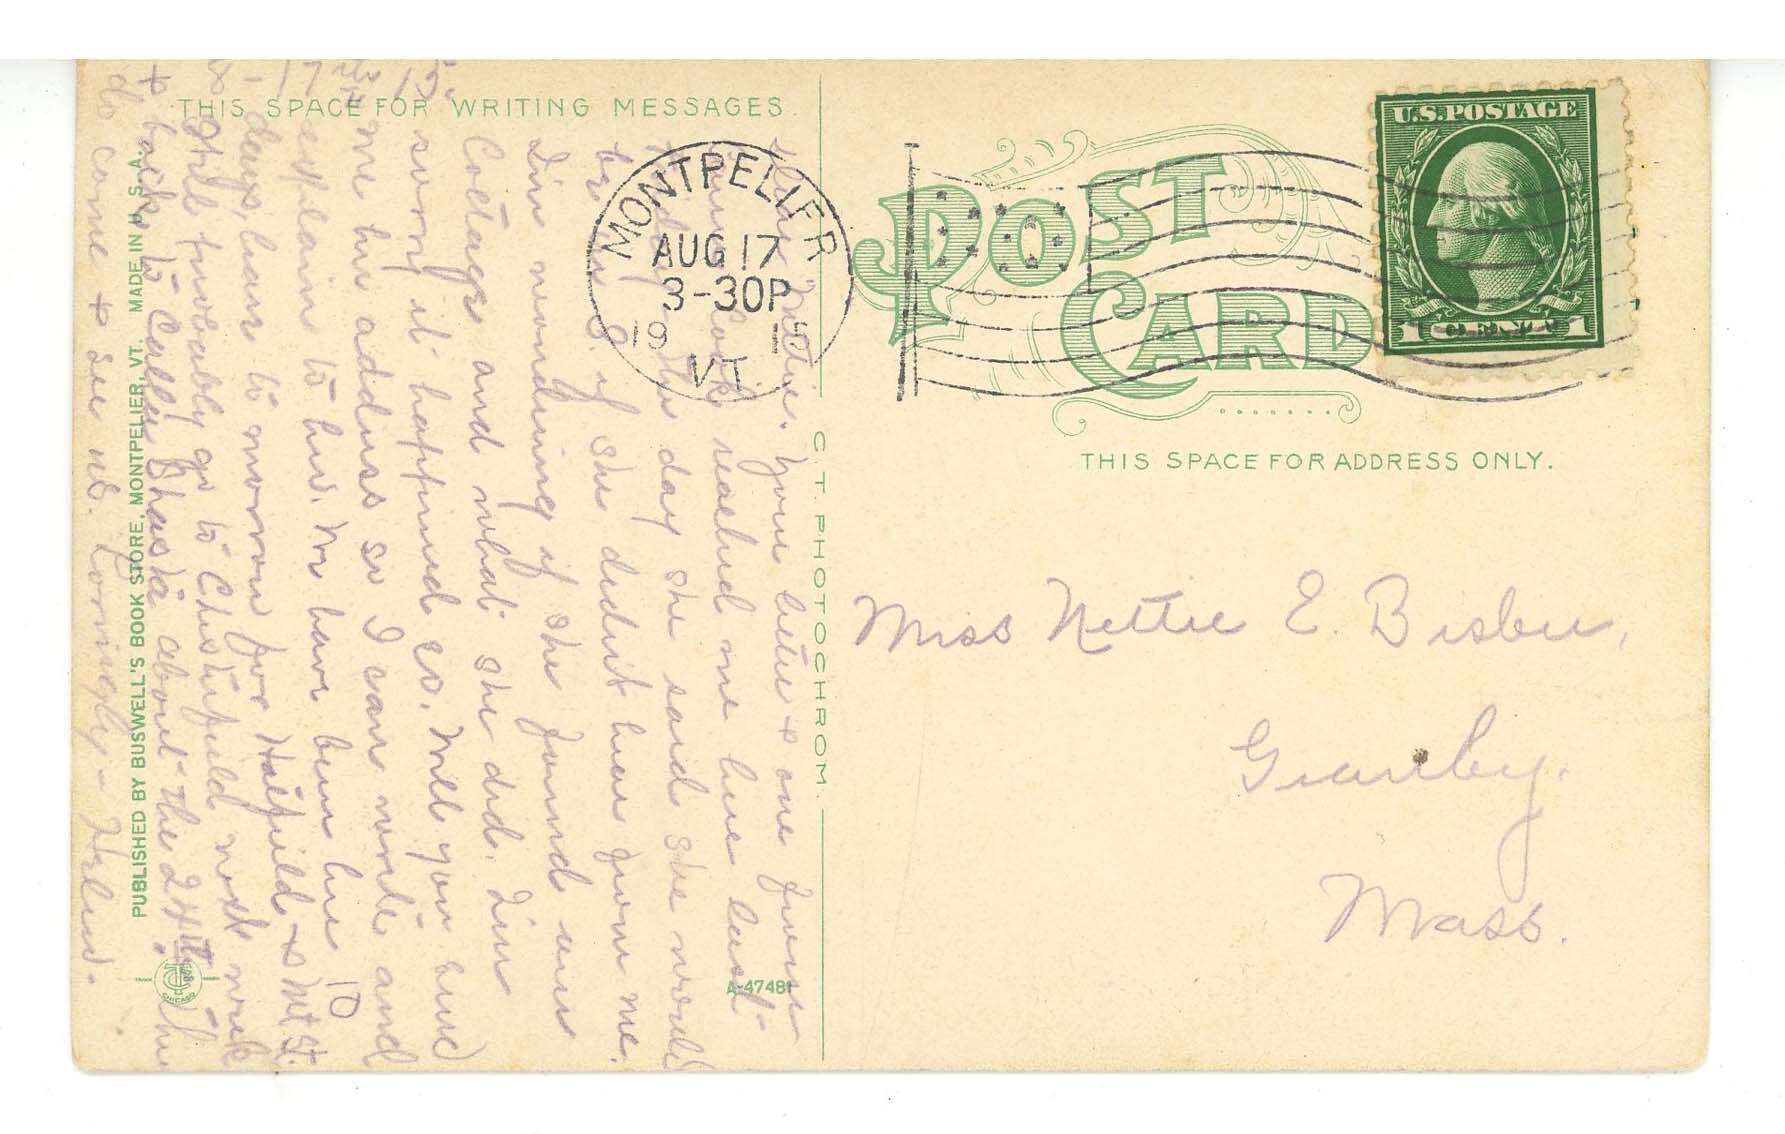 THIS SPACE FOR WRITING MESSAGES.
8-17th 15.
Dear Nettie, Your letter & one from
Aunt reached me here last
the day she said she would
be in S. if she didn't hear from me.
I'm wondering if she found our
Cottage and what she did. I'm
sorry it happened so. Will you send
me her address so I can write and
explain to her. We have been here 10
days, leave to-morrow for Hatfield & Mt St.
Will probably go to Chesterfield next week
& back to Camp Shasta about the 24th. Then
do come & see us. Lovingly - Helen.
PUBLISHED BY BUSWELL'S BOOK STORE, MONTPELIER, VT. MADE IN U.S.A.
CHICAGO
A-47481
C.T. PHOTOCHROM.
MONTPELIER
AUG 17
3-30P
1915
VT.
POST
CARD
U.S. POSTAGE
1 CENT 1
THIS SPACE FOR ADDRESS ONLY.
Miss Nettie E. Bisbee,
Granby.
Mass.